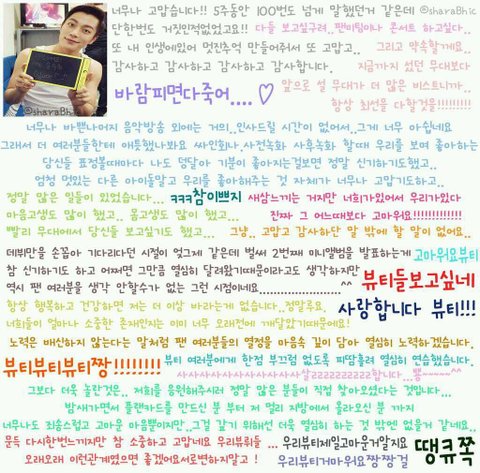 너무나 고맙습니다!! 5주동안 100번도 넘게 말했던거 같은데 @sharaBhic
단한번도 거짓인적없었고요!! 다들 보고싶구려..팬미팅이나 콘서트 하고싶다..
또 내 인생에있어 멋진추억 만들어주셔서 또 고맙고.. 그리고 약속할게요..
감사하고 감사하고 감사하고 감사합니다. 지금까지 섰던 무대보다
바람피면다죽어.... ♡ 앞으로 설 무대가 더 많은 비스트니까..
@sharaBhic
항상 최선을 다할것을!!!!!!!!!
너무나 바빴나머지 음악방송 외에는 거의..인사드릴 시간이 없어서..그게 너무 아쉽네요
그래서 더 여러분들한테 애틋했나봐요 싸인회나..사전녹화 사후녹화 할때 우리를 보며 좋아하는
당신들 표정볼때마다 나도 덩달아 기분이 좋아지는걸보면 정말 신기하기도했고..
엄청 멋있는 다른 아이돌말고 우리를 좋아해주는 것 자체가 너무나 고맙기도하고..
정말 많은 일들이 있었습니다... ㅋㅋㅋ참이쁘지 새삼느끼는 거지만 너희가있어서 우리가있다
마음고생도 많이 했고.. 몸고생도 많이 했고.. 진짜 그 어느때보다 고마워요!!!!!!!!!!!!!
빨리 무대에서 당신들 보고싶기도 했고... 그냥.. 고맙고 감사하단 말 밖에 할 말이 없어요..
데뷔만을 손꼽아 기다리다던 시절이 엊그제 같은데 벌써 2번째 미니앨범을 발표하는게 고마워요뷰티
참 신기하기도 하고 어쩌면 그만큼 열심히 달려왔기때문이라고도 생각하지만 뷰티들보고싶네
역시 팬 여러분을 생각 안할수가 없는 그런 시점이네요.....................^^
항상 행복하고 건강하면 저는 더 이상 바라는게 없습니다..정말루요. 사랑합니다 뷰티!!!
너희들이 얼마나 소중한 존재인지는 이미 너무 오래전에 깨달았기때문에요!
노력은 배신하지 않는다는 말처럼 팬 여러분들의 열정을 마음속 깊이 담아 열심히 노력하겠습니다.
뷰티뷰티뷰티짱!!!!!!!!! 뷰티 여러분에게 한점 부끄럼 없도록 피땀흘려 열심히 연습했습니다.
사사사사사사사사사사사사살2222222222합니다...뿅~~~~~^^
그보다 더욱 놀란것은.. 저희를 응원해주시러 정말 많은 분들이 직접 찾아오셨다는 것입니다...
밤새가면서 플랜카드를 만드신 분 부터 저 멀리 지방에서 올라오신 분 까지
너무나도 죄송스럽고 고마운 마음뿐이지만..그걸 갚기 위해선 더욱 열심히 하는 것 밖엔 없을거 같네요..
문득 다시한번느끼지만 참 소중하고 고맙네요 우리뷰뤼들 ... 우리뷰티제일고마운거알지요 땡큐쪽
오래오래 이런관계였으면 좋겠어요서로변하지말고 ! 우리뷰티거마워요짝짝겅